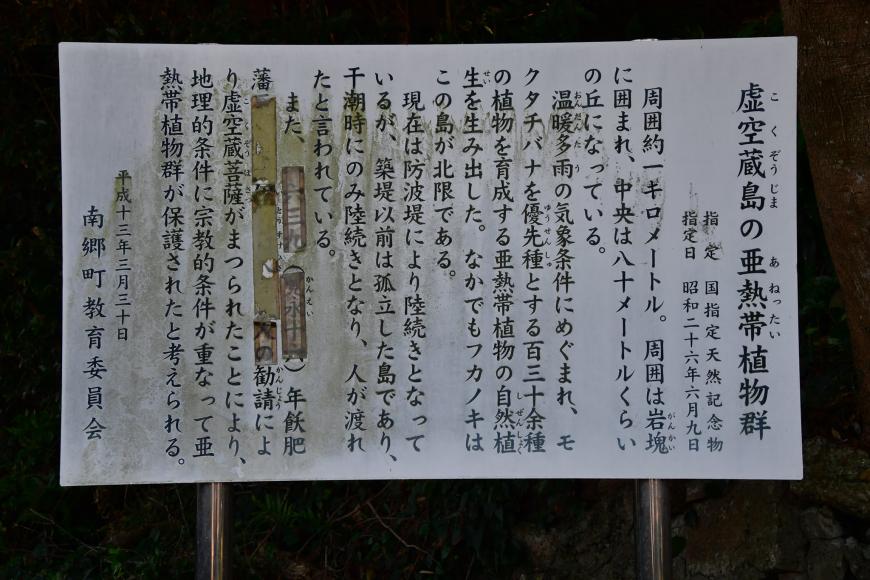 虚空蔵島の亜熱帯植物群
指定 国指定天然記念物
指定日 昭和二十六年六月九日
周囲約一キロメートル。周囲は岩塊
に囲まれ、中央は八十メートルくらい
の丘になっている。
温暖多雨の気象条件にめぐまれ、モ
クタチバナを優先種とする百三十余種
の植物を育成する亜熱帯植物の自然植
生を生み出した。なかでもフカノキは
この島が北限である。
現在は防波堤により陸続きとなって
いるが、築堤以前は孤立した島であり、
干潮時にのみ陸続きとなり、人が渡れ
たと言われている。
また、 年飫肥
藩 の勧請によ
り虚空蔵菩薩がまつられたことにより、
地理的条件に宗教的条件が重なって亜
熱帯植物群が保護されたと考えられる。
平成十三年三月三十日
南郷町教育委員会